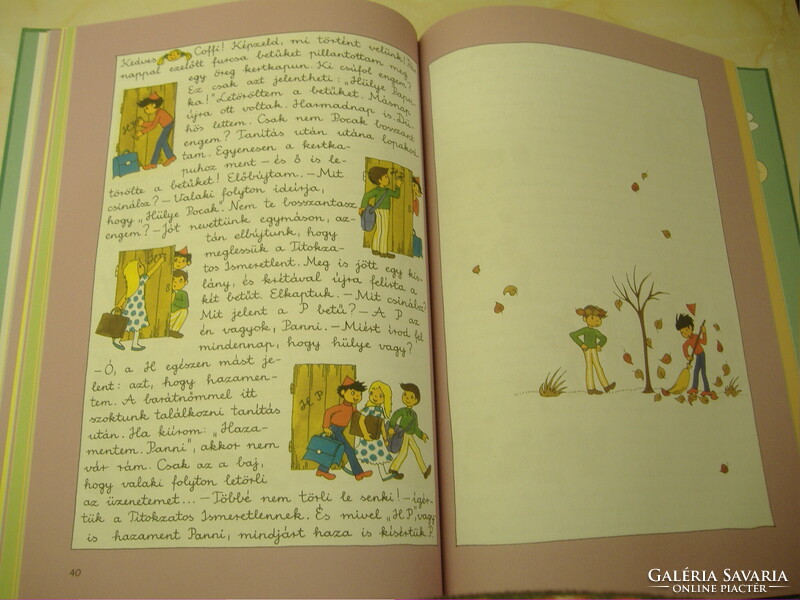 Kedves Coffi! Képzeld, mi történt velünk!
nappal ezelőtt furcsa betűket pillantottam meg
egy öreg kertkapun. Ki csúfol engem?
Ez csak azt jelentheti: „Hülye
ka!" Letöröltem a betűket. Másnap
újra ott voltak. Harmadnap is. Dü-
hös lettem. Csak nem Pocak bosszant
engem? Tanítás után utána lopakod-
tam. Egyenesen a kertka-
puhoz ment – és ő is le-
törölte a betűket! Előbújtam. – Mit
csinálsz? – Valaki folyton ideírja,
hogy „Hülye Pocak". Nem te bosszantasz
engem? – Jót nevettünk egymáson, az-
tán elbújtunk, hogy
meglessük a Titokza-
tos Ismeretlent. Meg is jött egy kis-
lány, és krétával újra felírta a
két betűt. Elkaptuk. – Mit csinálsz?
Mit jelent a P betű? – A P az
én vagyok, Panni. – Miért írod fel
mindennap, hogy hülye vagy?
– Ó, a H egészen mást je-
lent: azt, hogy hazamen-
tem. A barátnőmmel itt
szoktunk találkozni tanítás
után. Ha kiírom: „Haza-
mentem. Panni", akkor nem
vár rám. Csak az a baj,
hogy valaki folyton letörli
az üzenetemet... – Többé nem törli le senki! – ígér-
tük a Titokzatos Ismeretlennek. És mivel „H P", vagy
is hazament Panni, mindjárt haza is kísértük P.
H P
40
GALÉRIA SAVARIA
ONLINE PIACTÉR